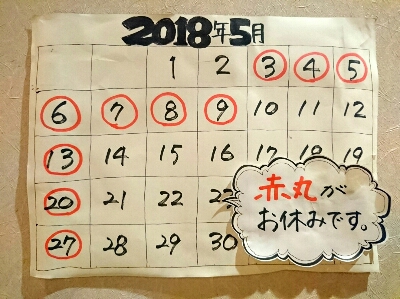 2018年5月
1 2 3 4 5
6 7 8 9 10 11 12
13 14 15 16 17 18 19
20 21 22
27 28 29 30
赤丸が
お休みです。